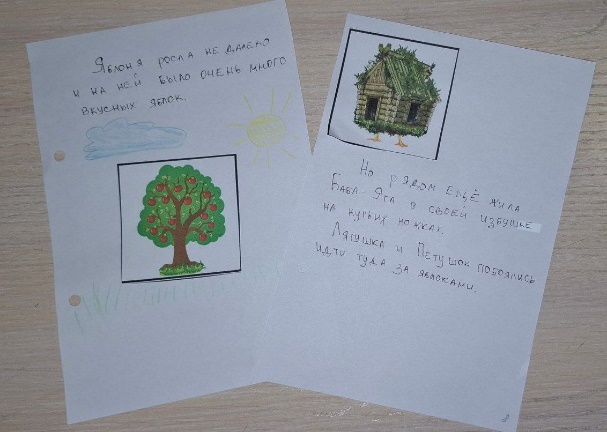 Яблоня росла не далеко
и на ней было очень много
вкусных яблок.
Но рядом ещё жила
Баба-Яга в своей избушке
на курьих ножках.
Лягушка и Петушок побоялись
идти туда за яблоками.